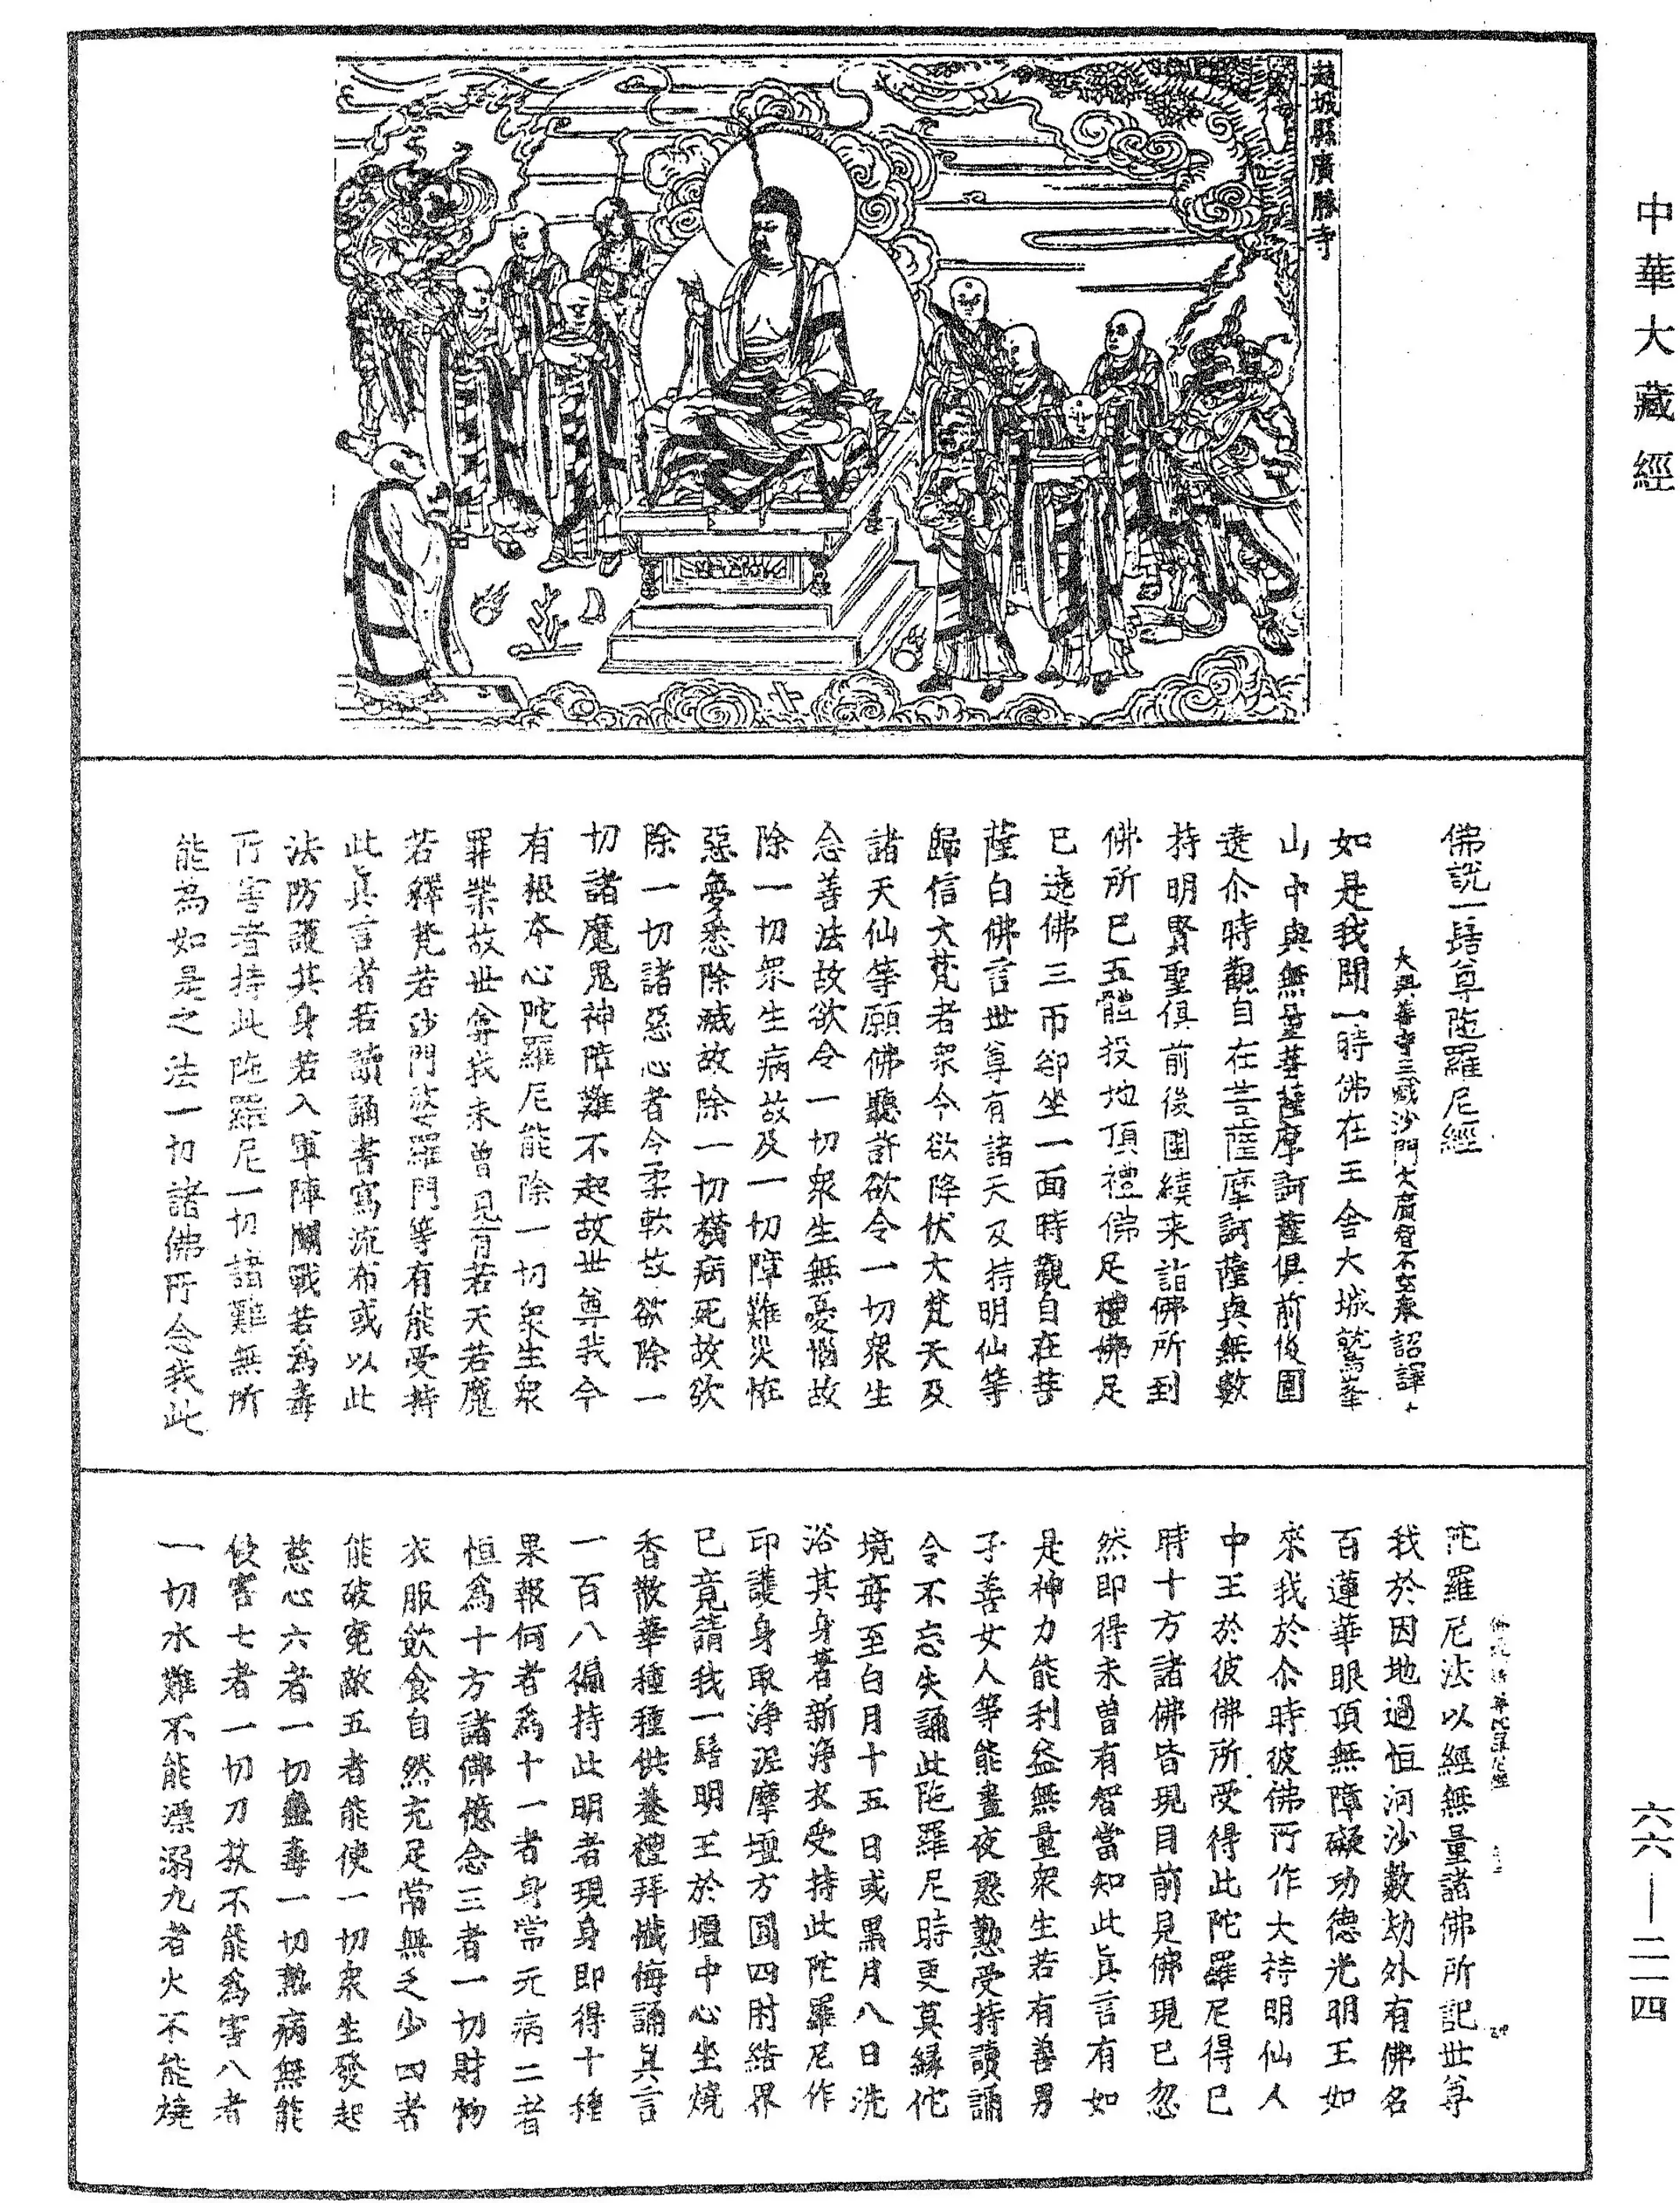 中華大藏經
趙城縣廣勝寺
佛說一髻尊陁羅尼經
大興善寺三藏沙門大廣智不空奉詔譯
如是我聞一時佛在王舍大城鷲峯
山中與無量菩薩摩訶薩俱前後圍
遶尒時觀自在菩薩摩訶薩與無數
持明賢聖俱前後圍繞来詣佛所到
佛所已五體投地頂禮佛足禮佛足
已遶佛三帀却坐一面時觀自在菩
薩白佛言世尊有諸天及持明仙等
歸信大梵者衆今欲降伏大梵天及
諸天仙等願佛聽許欲令一切衆生
念善法故欲令一切衆生無憂惱故
除一切衆生病故及一切障難災恠
惡夢悉除滅故除一切橫病死故欲
除一切諸惡心者令柔軟故欲除一
切諸魔鬼神障難不起故世尊我今
有根本心陀羅尼能除一切衆生衆
罪業故世尊我未曾見有若天若魔
若釋梵若沙門婆羅門等有能受持
此真言者若讀誦書寫流布或以此
法防護其身若入軍陣鬭戰若為毒
所害者持此陁羅尼一切諸難無所
能為如是之法一切諸佛所念我此
陀羅尼法以經無量諸佛所記世尊
我於因地過恒河沙數劫外有佛名
百蓮華眼頂無障礙功德光明王如
來我於尒時彼佛所作大持明仙人
中王於彼佛所受得此陀羅尼得已
時十方諸佛皆現目前見佛現已忽
然即得未曾有智當知此真言有如
是神力能利益無量衆生若有善男
子善女人等能晝夜慇懃受持讀誦
令不忘失誦此陁羅尼時更莫緣佗
境每至白月十五日或黑月八日洗
浴其身著新淨衣受持此陀羅尼作
印護身取淨泥摩壇方圓四肘結界
已竟請我一髻明王於壇中心坐燒
香散華種種供養禮拜懺悔誦真言
一百八徧持此明者現身即得十種
果報何者為十一者身常无病二者
恒為十方諸佛憶念三者一切財物
衣服飲食自然充足常無乏少四者
能破寃敵五者能使一切衆生發起
慈心六者一切蠱毒一切熱病無能
侵害七者一切刀杖不能為害八者
一切水難不能漂溺九者火不能燒
六六—二一四